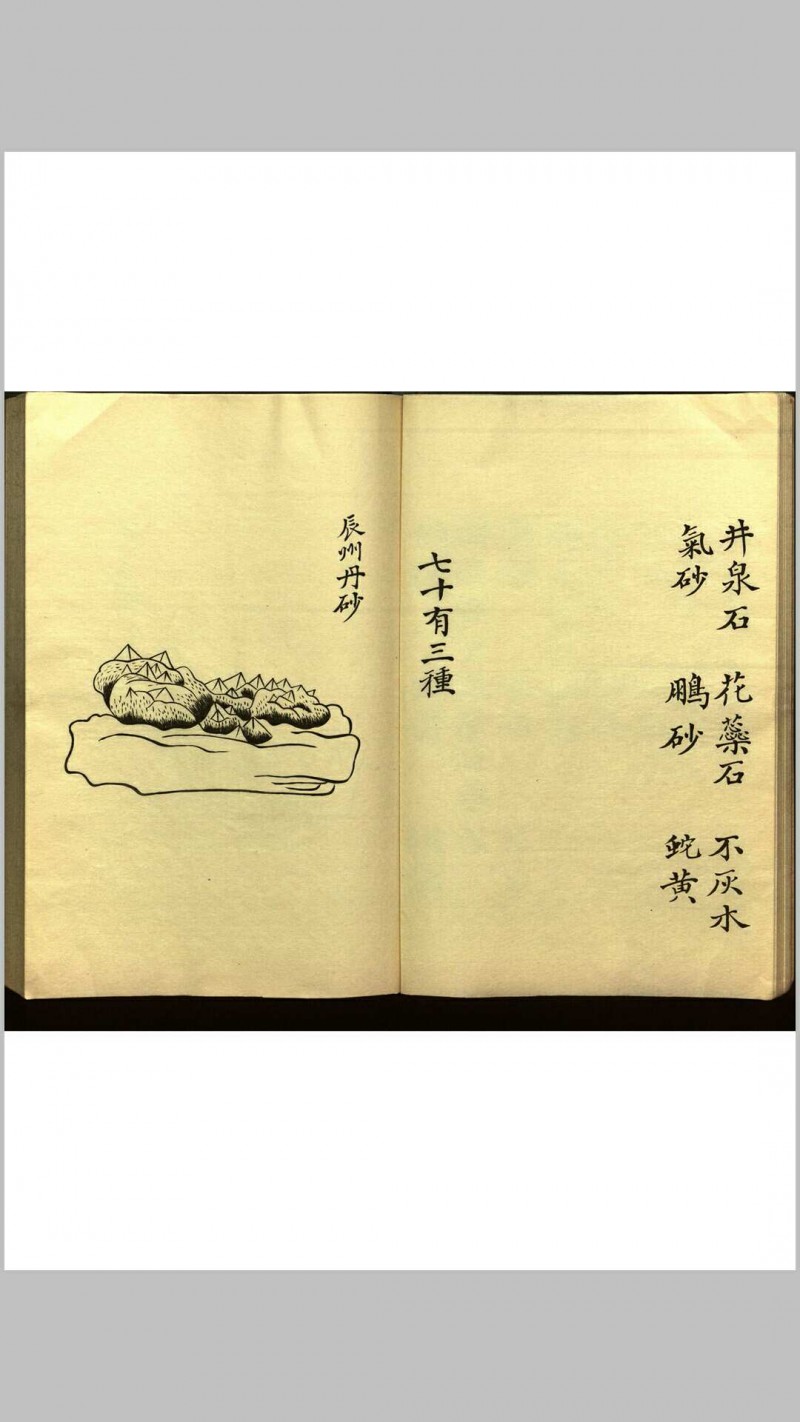 井泉石 花蘂石 不灰木
氣砂 鵬砂 蛇黄
七十有三種
辰州丹砂